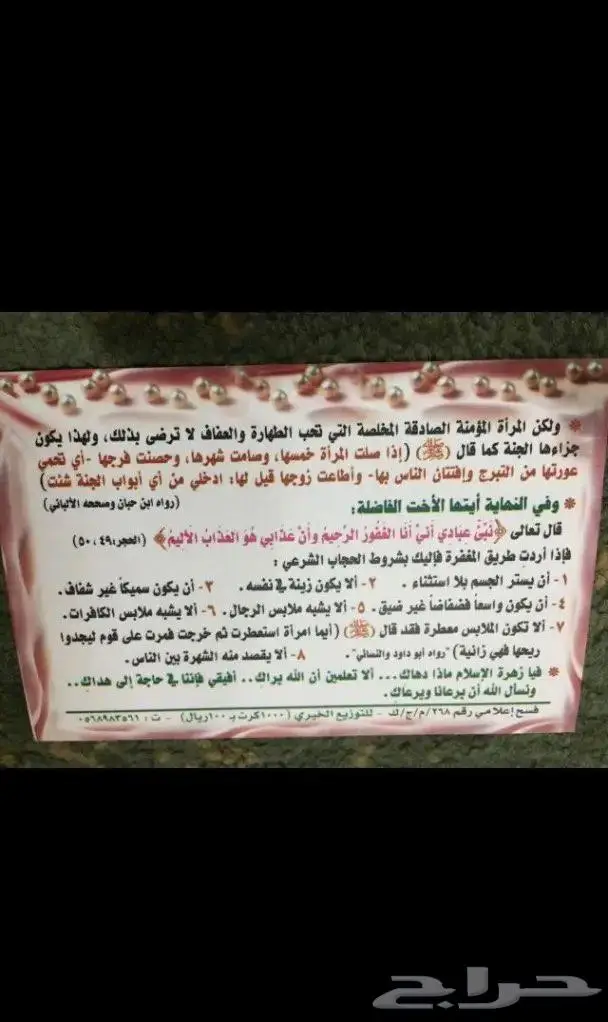 * ولكن المرأة المؤمنة الصادقة المخلصة التي تحب الطهارة والعفاف لا ترضى بذلك، ولهذا يكون
جزاءها الجنة كما قال (ﷺ) (إذا صلت المرأة خمسها، وصامت شهرها، وحصنت فرجها -أي تحمي
عورتها من التبرج وإفتتان الناس بها- وأطاعت زوجها قيل لها: ادخلي من أي أبواب الجنة شئت)
(رواه ابن حبان وصححه الألباني)
* وفي النهاية أيتها الأخت الفاضلة:
قال تعالى ﴿نَبِّئْ عِبَادِي أَنِّي أَنَا الغَفُورُ الرَّحِيمُ وَأَنَّ عَذَابِي هُوَ العَذَابُ الأَلِيمُ﴾ (الحجر:٤٩، ٥٠)
فإذا أردتِ طريق المغفرة فإليك بشروط الحجاب الشرعي :
١- أن يستر الجسم بلا استثناء . ٢- ألا يكون زينة في نفسه . ٣- أن يكون سميكاً غير شفاف.
٤- أن يكون واسعاً فضفاضاً غير ضيق. ٥- ألا يشبه ملابس الرجال. ٦- ألا يشبه ملابس الكافرات.
٧- ألا تكون الملابس معطرة فقد قال (ﷺ) (أيما امرأة استعطرت ثم خرجت فمرت على قوم ليجدوا
ريحها فهي زانية) "رواه أبو داود والنسائي". ٨- ألا يقصد منه الشهرة بين الناس.
* فيا زهرة الإسلام ماذا دهاكِ... ألا تعلمين أن الله يراكِ.. أفيقي فإننا في حاجة إلى هداكِ..
ونسأل الله أن يرعانا ويرعاكِ.
فسح إعلامي رقم ٢٦٨/م/ج/ك - للتوزيع الخيري (١٠٠٠كرت بـ ١٠٠ريال) - ت: ٠٥٦٨٩٨٣٥٦١
حراج